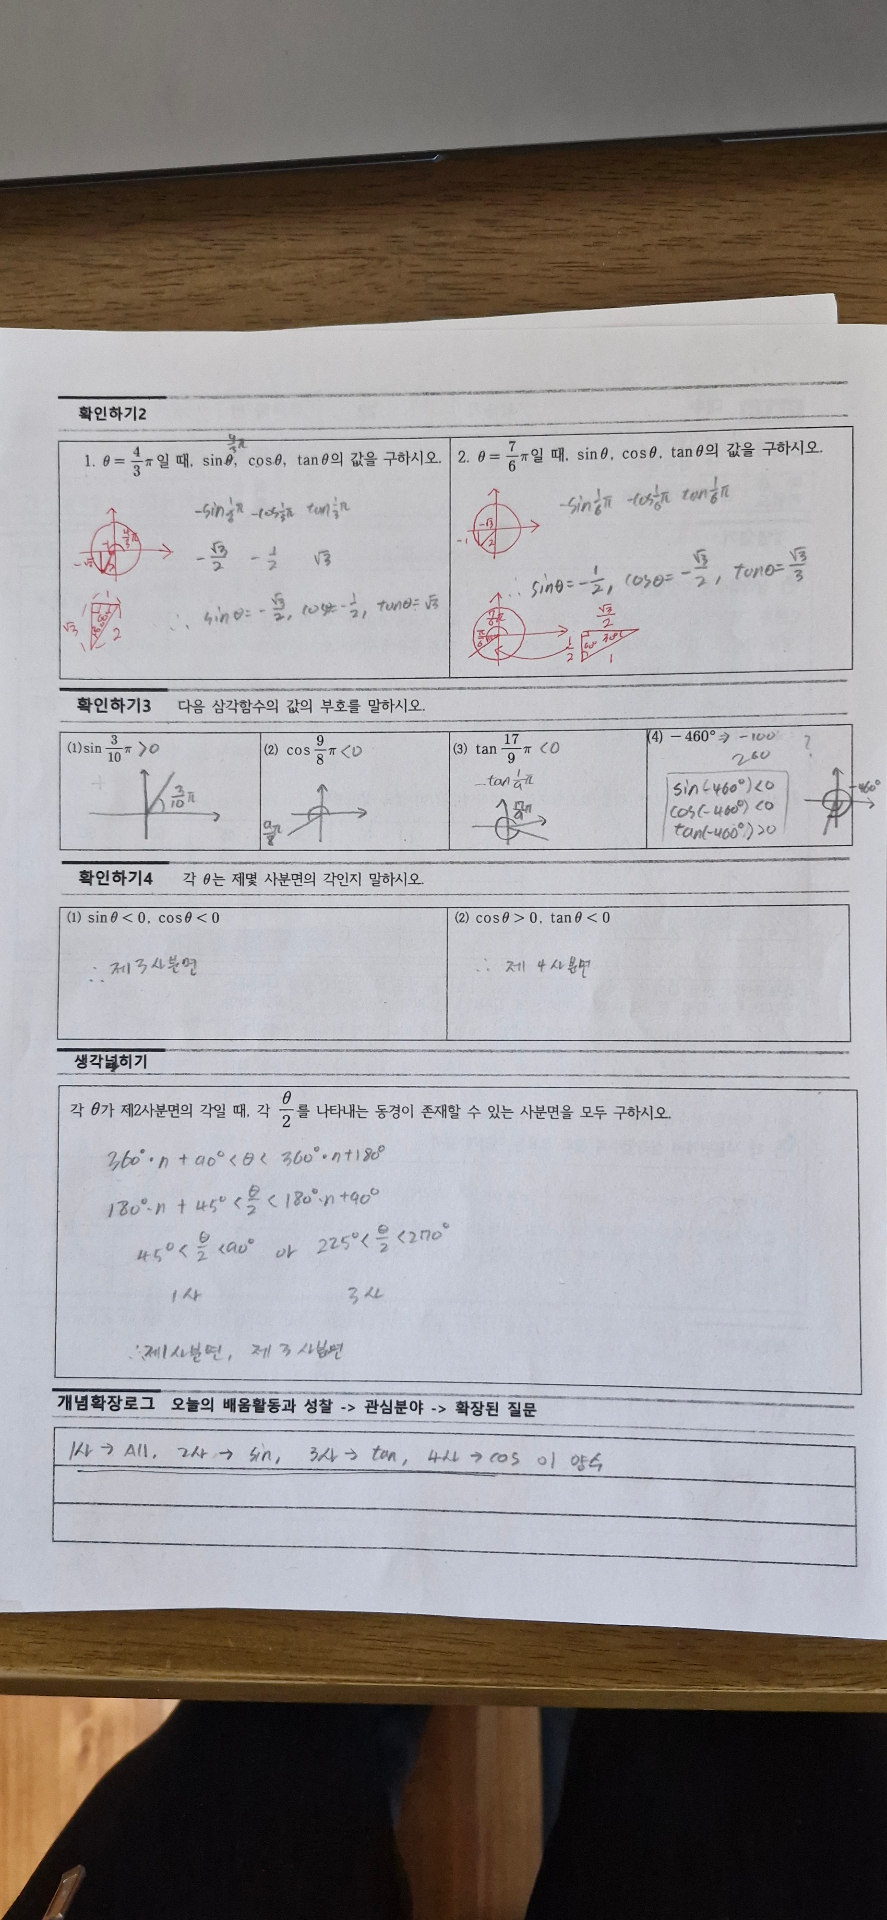 확인하기2
1. θ = 4/3 π일 때, sinθ, cosθ, tanθ의 값을 구하시오.
4/3π
-sin 1/3π -cos 1/3π tan 1/3π
-√3/2 -1/2 √3
∴ sinθ=-√3/2, cosθ=-1/2, tanθ=√3
√3 2 1
2. θ = 7/6 π일 때, sinθ, cosθ, tanθ의 값을 구하시오.
-sin 1/6π -cos 1/6π tan 1/6π
-√3
-1 2
∴ sinθ=-1/2, cosθ=-√3/2, tanθ=√3/3
√3/2
1/2 60° 30°
1
확인하기3 다음 삼각함수의 값의 부호를 말하시오.
(1) sin 3/10 π >0
3/10 π
(2) cos 9/8 π <0
9/8 π
(3) tan 17/9 π <0
-tan 1/9 π
17/9 π
(4) -460° ⇒ -100 ?
260
sin(-460°)<0
cos(-460°)<0
tan(-460°)>0
-460°
확인하기4 각 θ는 제몇 사분면의 각인지 말하시오.
(1) sinθ < 0, cosθ < 0
∴ 제3사분면
(2) cosθ > 0, tanθ < 0
∴ 제 4사분면
생각넓히기
각 θ가 제2사분면의 각일 때, 각 θ/2를 나타내는 동경이 존재할 수 있는 사분면을 모두 구하시오.
360°·n + 90° < θ < 360°·n+180°
180°·n + 45° < θ/2 < 180°·n+90°
45° < θ/2 < 90° or 225° < θ/2 < 270°
1사 3사
∴제1사분면, 제 3사분면
개념확장로그 오늘의 배움활동과 성찰 -> 관심분야 -> 확장된 질문
1사 → All, 2사 → sin, 3사 → tan, 4사 → cos 이 양수